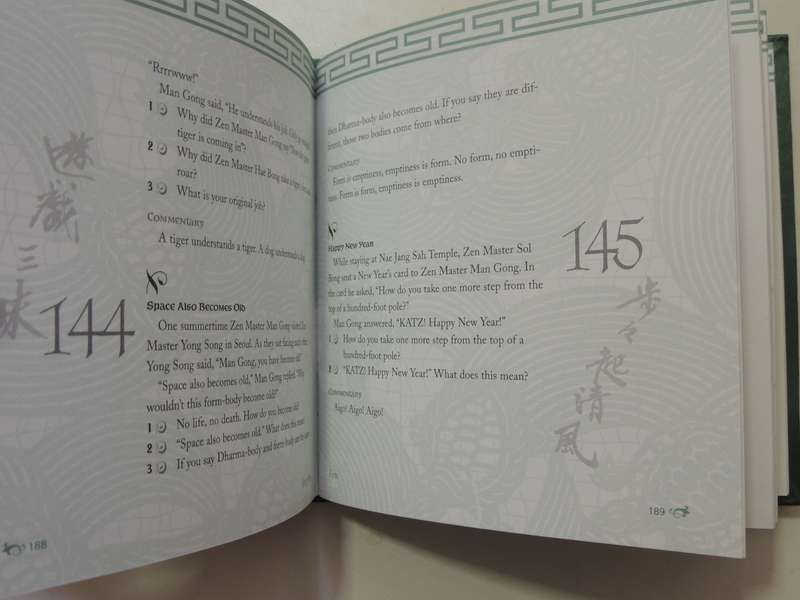 "Rrrrwww!"
Man Gong said, "He understands his job.
1 Why did Zen Master Man Gong say
tiger is coming in"?
2 Why did Zen Master Hae Bong
roar?
3 What is your original job?
Commentary
A tiger understands a tiger. A dog understands a dog.
遊戲三昧
144
Space Also Becomes Old
One summertime Zen Master Man Gong visited Zen
Master Yong Song in Seoul. As they sat facing each other,
Yong Song said, "Man Gong, you have become old."
"Space also becomes old," Man Gong replied. "Why
wouldn't this form-body become old?"
1 No life, no death. How do you become old?
2 "Space also becomes old." What does this mean?
3 If you say Dharma-body and form-body are the same
188
then Dharma-body also becomes old. If you say they are dif-
ferent, those two bodies come from where?
Commentary
Form is emptiness, emptiness is form. No form, no empti-
ness. Form is form, emptiness is emptiness.
145
Happy New Year
While staying at Nae Jang Sah Temple, Zen Master Sol
Bong sent a New Year's card to Zen Master Man Gong. In
the card he asked, "How do you take one more step from the
top of a hundred-foot pole?"
Man Gong answered, "KATZ! Happy New Year!"
1 How do you take one more step from the top of a
hundred-foot pole?
2 "KATZ! Happy New Year!" What does this mean?
Commentary
Aigo! Aigo! Aigo!
步々起清風
189